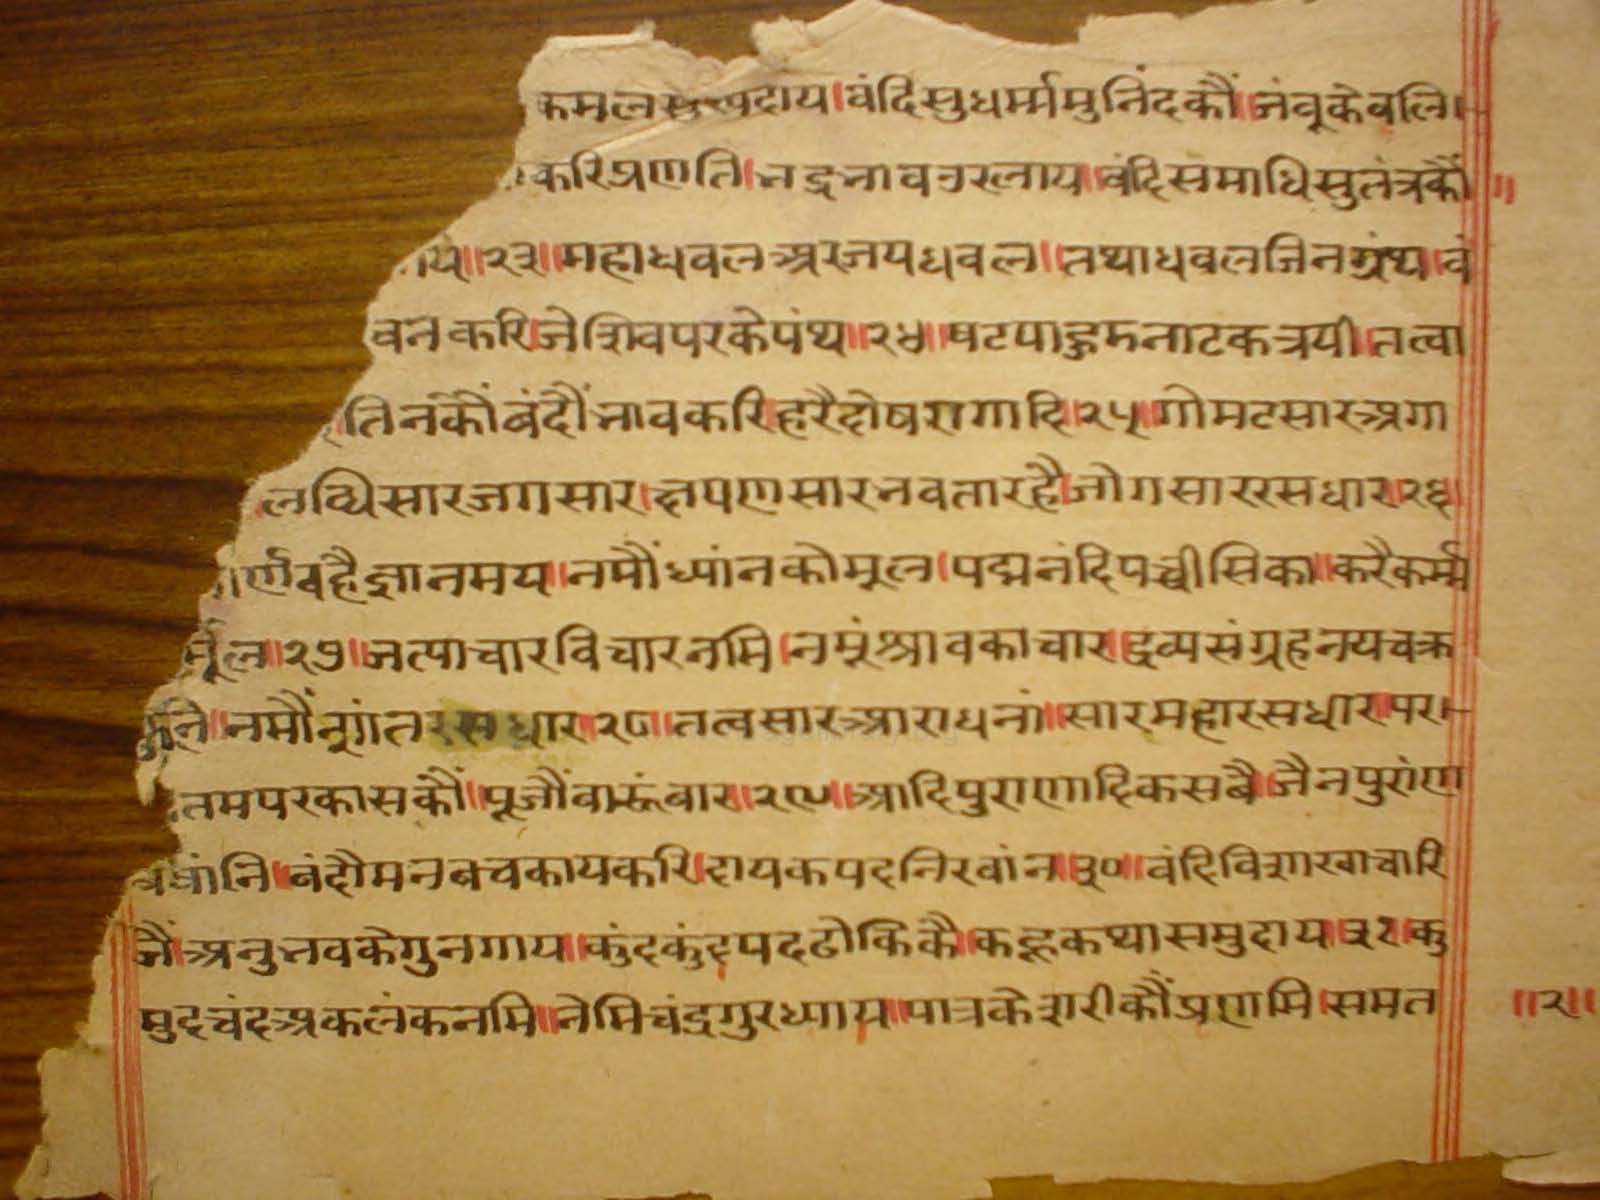 कमल सुखदाय।वंदि सुधर्म्म मुनिंदकौं॥जंबूकेवलि।
करि प्रणति।भद्रभाव उरलाय॥वंदि समाधि सुतंत्रकौं॥
य॥२३॥महाधवल अर जयधवल॥तथा धवल जिनग्रंथ॥वं
वन करि।जे शिवपरके पंथ॥२४॥षटपाहुड नाटकत्रयी।तत्वा
तिनकौं वंदौं भाव करि।हरै दोष रागादि॥२५॥गोमटसार अगा
लब्धिसार जगसार।क्षपणसार भवतार है।जोगसार रसधार॥२६॥
र्णव है ज्ञानमय॥नमौं ध्यांन को मूल।पद्मनंदिपच्चीसिका॥करै कर्म्म
र्मूल॥२७॥जत्याचार विचार नमि।नमूं श्रावकाचार॥द्रव्यसंग्रह नयचक्र
नि॥नमौं शांत रसधार॥२८॥तत्वसार आराधनां॥सार महारसधार॥पर।
तमपरकासकौं॥पूजौं वारूंवार॥२९॥आदिपुराणादिक सबै॥जैन पुरांण
वषांनि॥वंदौ मन बच काय करि।दायक पद निरवांन॥३०॥वंदि विशाखाचारि
जैं॥अनुभवके गुन गाय॥कुंदकुंद पद ढोकि कै॥कहू कथा समुदाय॥३१॥कु
मुदचंद अकलंक नमि॥नेमिचंद्र गुर ध्याय॥पात्रकेशरी कौं प्रणमि।समत
॥२॥